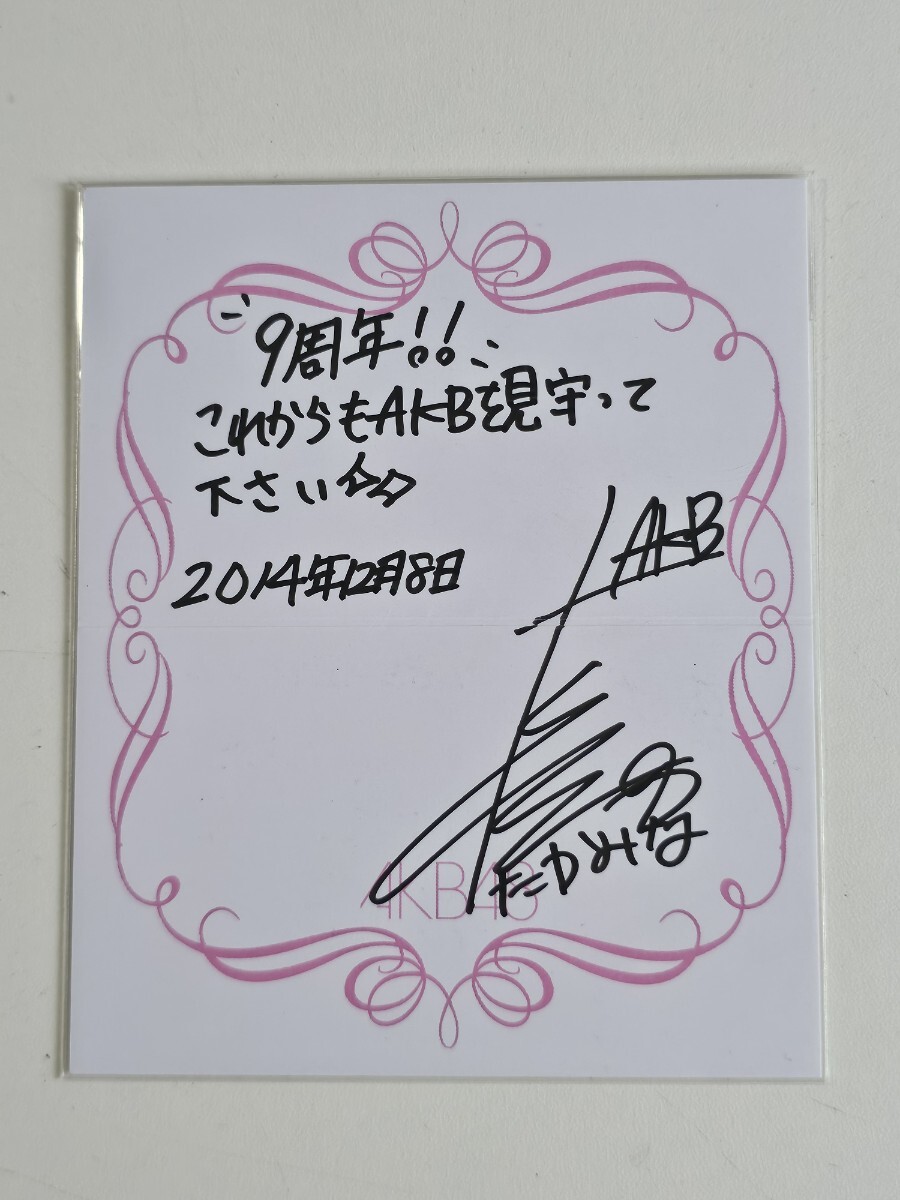 9周年!!
これからもAKBを見守って
下さい☆☆
2014年12月8日
AKB
たかみな
AKB48